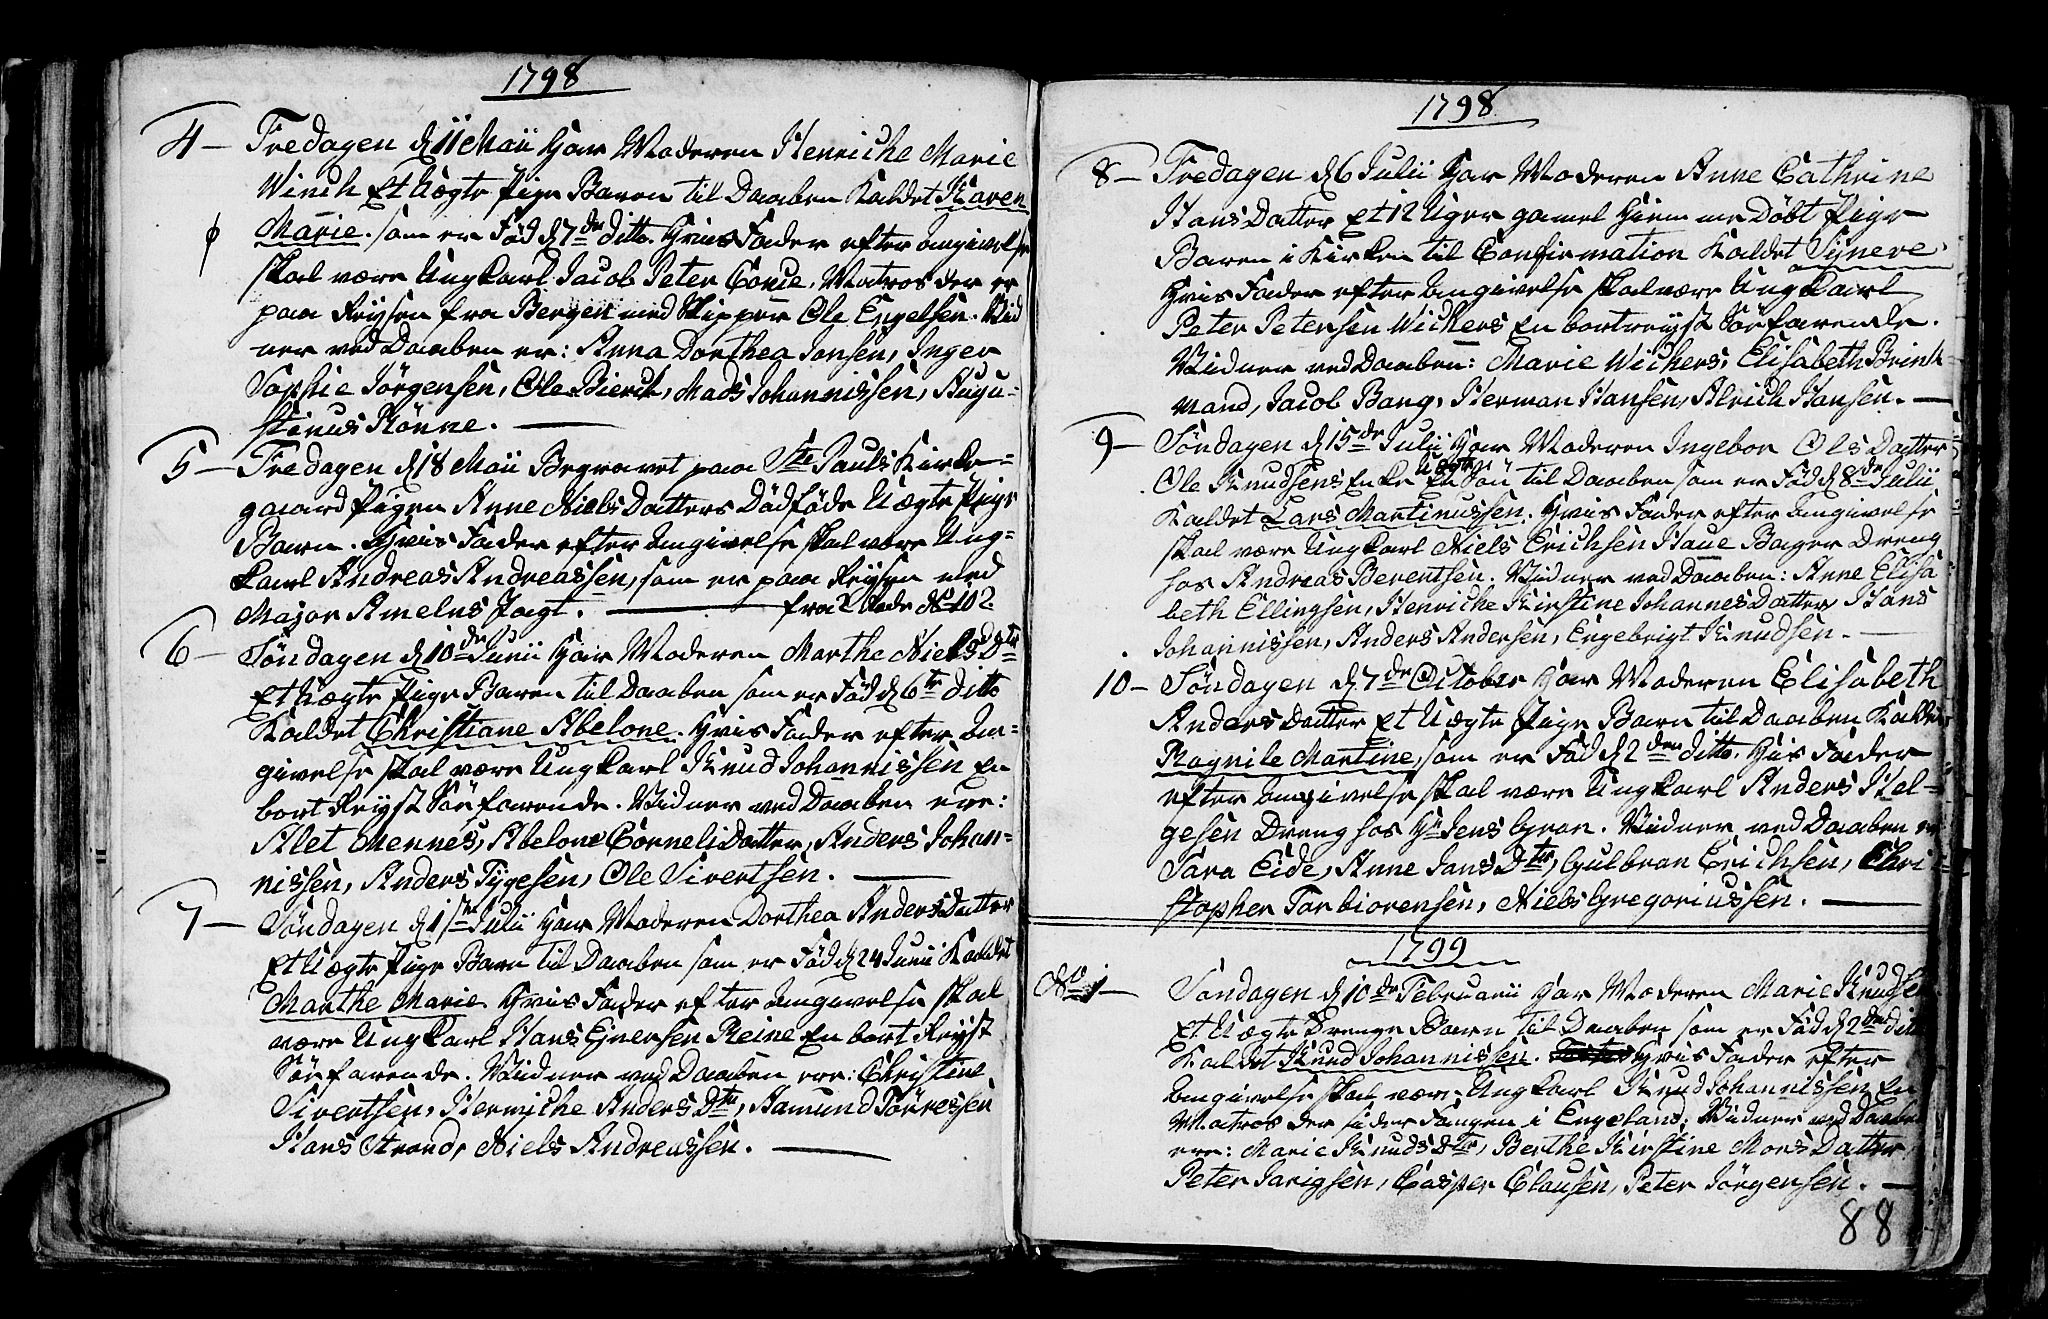 1798
4 — Fredagen d 11 Maii har Moderen Henriche Marie
Winch Et Uægte Pige Barn til Daaben Kaldet Karen
Marie. som er Fød d 7de ditto. Hvis Fader efter Angivelse
skal være Ungkarl Jacob Peter, Matros der er
paa Reysen fra Bergen med Skipper Ole Engelsen. Vid
ner ved Daaben er: Anna Dorthea Jonsen, Inger
Sophie Jørgensen, Ole Bierck, Mads Johannissen, Augu-
stinus Rønne. —
5 — Fredagen d 18 Maii Begravet paa Ste Pauls Kirke-
gaard Pigen Anne Niels Datters Dødføde Uægte Pige
Barn. Hvis Fader efter Angivelse skal være Ung-
karl Andreas Andreassen, som er paa Reysen med
Major Amelns Jagt. —
6 — Søndagen d 10de Junii har Moderen Marthe Niels Dtr
Et Uægte Pige Barn til Daaben som er Fød d 6te ditto
Kaldet Christiane Abelone. Hvis Fader efter An-
givelse skal være Ungkarl Knud Johannissen En
bort Reyst Søefarende. Vidner ved Daaben ere:
Alet Mennes, Abelone Corneli Datter, Anders Johan-
nissen, Anders Tygesen, Ole Sivertsen. —
7 — Søndagen d 1ste Julii har Moderen Dorthea Anders Datter
Et Uægte Pige Barn til Daaben som er Fød d 24 Junii Kaldet
Marthe Marie. Hvis Fader efter Angivelse skal
være Ungkarl Hans Ejnersen Reine En bort Reyst
Søefarende. Vidner ved Daaben ere: Christine
Sivertsen, Hermiche Anders Dtr, Aamund Tørresen
Hans Strand, Niels Andreassen. —
1798
8 — Fredagen d 6 Julii har Moderen Anne Cathrine
Hans Datter Et 12 Uger gamel Hiemme Døbt Pige
Barn i Kirken til Confirmation Kaldet Syneve
Hvis Fader efter Angivelse skal være Ungkarl
Peter Petersen Wichers En bortreyst Søefarende.
Vidner ved Daaben: Marie Wichers, Elisabeth Brink
mand, Jacob Bang, Herman Hansen, Alrich Hansen. —
9 — Søndagen d 15de Julii har Moderen Ingebor Ols Datter
Ole Knudsens Enke En Uægte Søn til Daaben som er Fød d 8de Julii
Kaldet Lars Martinussen. Hvis Fader efter Angivelse
skal være Ungkarl Niels Erichsen Haue Bager Dreng
hos Andreas Berentsen. Vidner ved Daaben: Anne Elisa
beth Ellingsen, Henriche Kirstine Johannes Datter, Hans
Johannissen, Anders Andersen, Engebrigt Knudsen. —
10 — Søndagen d 7de October har Moderen Elisabeth
Anders Datter Et Uægte Pige Barn til Daaben Kaldet
Ragnile Martine, som er Fød d 2den ditto. Hvis Fader
efter Angivelse skal være Ungkarl Anders Hel-
gesen Dreng hos Hr Jens Gran. Vidner ved Daaben er
Sara Eide, Anne Jans Dtr, Gulbran Erichsen, Chri
stopher Torbiorensen, Niels Gregoriussen. —
1799
No 1 — Søndagen d 10de Februarii har Moderen Marie Knudsen
Et Uægte Drenge Barn til Daaben som er Fød d 2den ditto
Kaldet Knud Johannissen. Hvis Fader efter
Angivelse skal være Ungkarl Knud Johannissen En
Matros der sider Fangen i Engeland. Vidner ved Daaben
ere: Marie Knuds Dtr, Berthe Kirstine Mons Datter
Peter Jarigsen, Casper Clausen, Peter Jørgensen. —
88